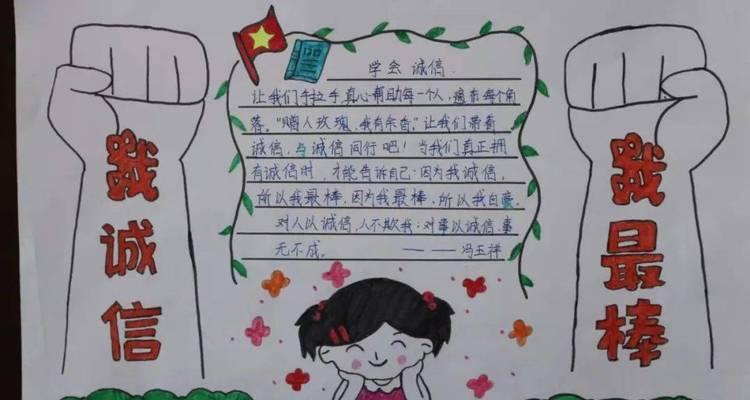 我诚信
学会 诚信.
让我们手拉手,真心帮助每一个人,遍布每个角
落。"赠人玫瑰,我有余香。"让我们带着
诚信,与诚信同行吧!当我们真正拥
有诚信时,才能告诉自己:因为我诚信,
所以我最棒,因为我最棒,所以我自豪。
对人以诚信,人不欺我;对事以诚信,事
无不成。 ——冯玉祥
我最棒